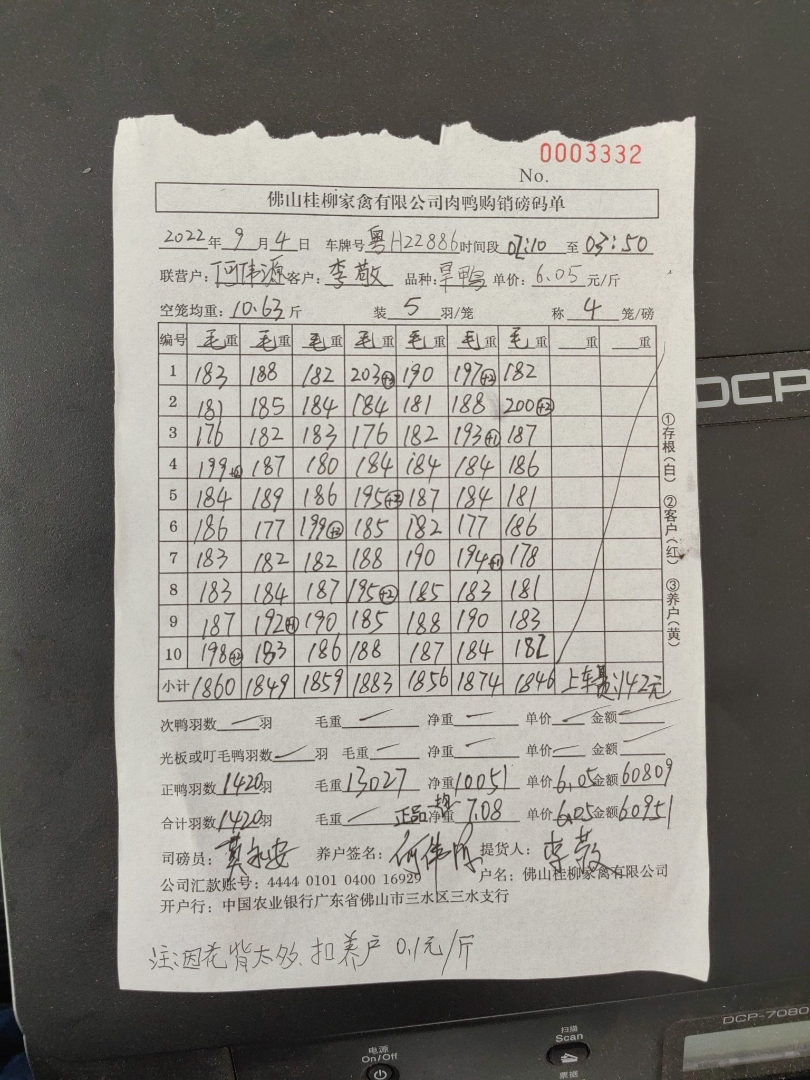 0003332
No.
佛山桂柳家禽有限公司肉鸭购销磅码单
2022年9月4日 车牌号粤H22886时间段02:10至03:50
联营户:何伟源客户:李敬 品种:旱鸭 单价:6.05元/斤
空笼均重:10.63斤 装5羽/笼 称4笼/磅
编号 毛重 毛重 毛重 毛重 毛重 毛重 毛重 重 重
1 183 188 182 203+3 190 197+2 182
2 181 185 184 184 181 188 200+2
3 176 182 183 176 182 193+1 187
4 199+2 187 180 184 184 184 186
5 184 189 186 195+2 187 184 181
6 186 177 199+2 185 182 177 186
7 183 182 182 188 190 194+1 178
8 183 184 187 195+2 185 183 181
9 187 192+1 190 185 188 190 183
10 198+2 183 186 188 187 184 182
小计 1860 1849 1859 1883 1856 1874 1846 上车费:142元
次鸭羽数 羽 毛重 净重 单价 金额
光板或叮毛鸭羽数 羽 毛重 净重 单价 金额
正鸭羽数1420羽 毛重13027 净重10051 单价6.05金额60809
合计羽数1420羽 毛重 正品 净重7.08 单价6.05金额60951
司磅员: 养户签名:何伟源 提货人:李敬
公司汇款账号:4444 0101 0400 16929 户名:佛山桂柳家禽有限公司
开户行:中国农业银行广东省佛山市三水区三水支行
注:因花背太多、扣养户 0.1元/斤
①存根(白) ②客户(红) ③养户(黄)
DCP
DCP-7080
电源
On/Off
扫描
Scan
票据